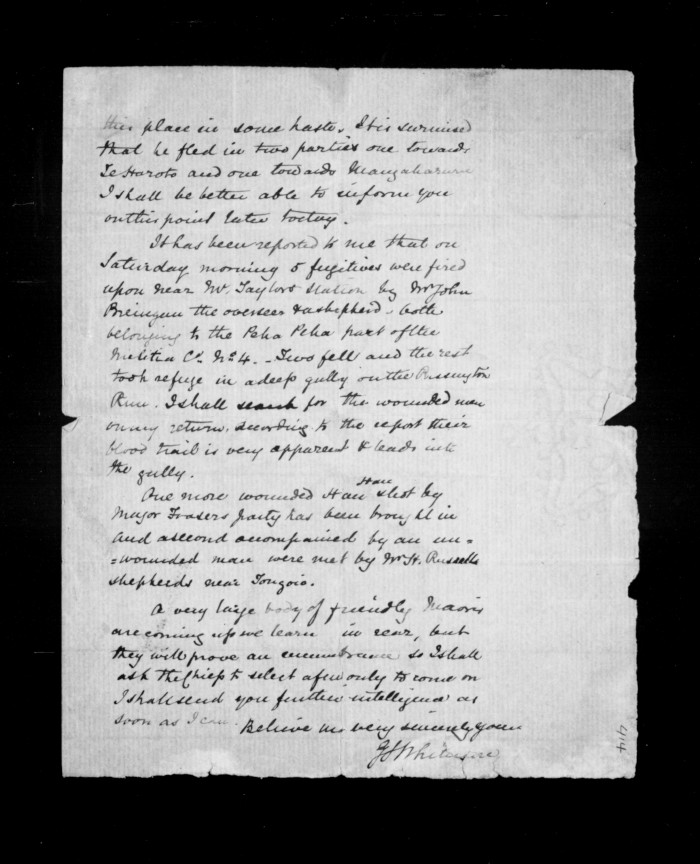 this place in some haste. It is surmised
that he fled in two parties one towards
Te Haroto and one towards Mangaharuru
I shall be better able to inform you
on this point later today.
It has been reported to me that on
Saturday morning 5 fugitives were fired
upon near Mr. Taylors Station by Mr John
the overseer & a shepherd, both
belonging to the Peka Peka part of the
Militia Co. No 4. - Two fell and the rest
took refuge in a deep gully on the Rissington
Run. I shall search for the wounded men
on my return, according to the report their
blood trail is very apparent & leads into
the gully.
Hau
One more wounded Hau shot by
Major Frasers party has been brought in
and a second accompanied by an un=
=wounded man were met by Mr H. Russells
shepherds near Tongoio.
A very large body of friendly Maoris
are coming up we learn in rear, but
they will prove an encumbrance so I shall
ask the Chiefs to select a few only to come on
I shall send you further intelligence as
soon as I can. Believe me very sincerely yours
G S Whitmore
414